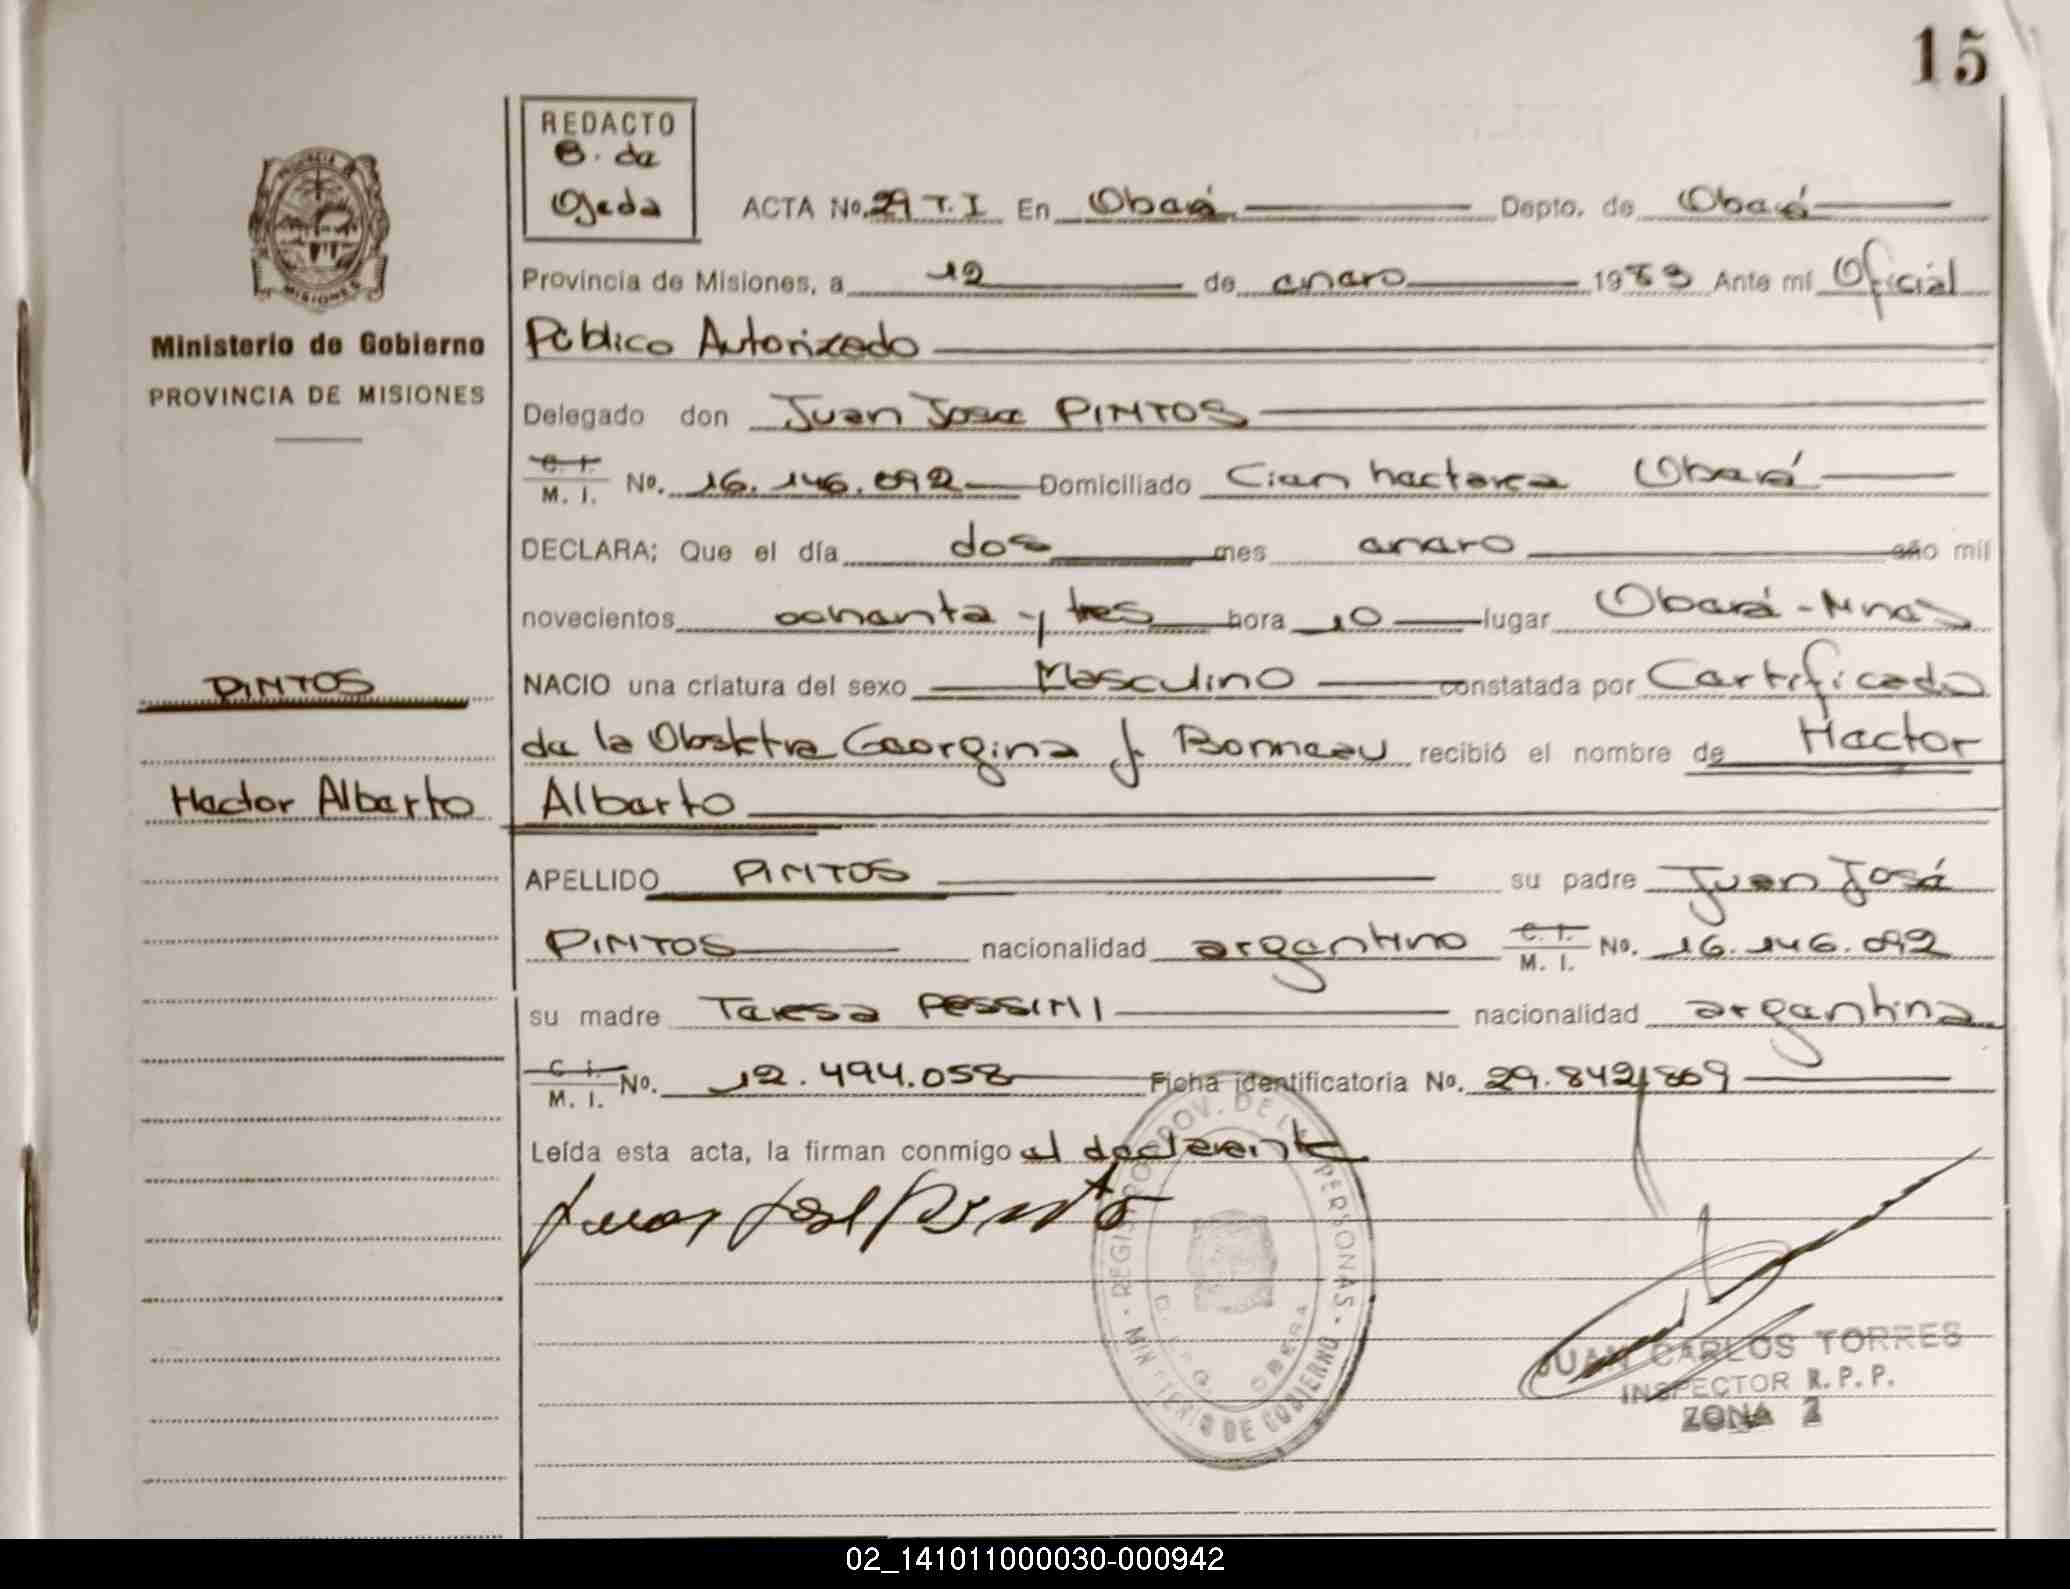 15
REDACTO
B. de
Ojeda
ACTA No. 29 T. I En Oberá Depto. de Oberá
Provincia de Misiones, a 12 de enero 1983 Ante mí Oficial
Ministerio de Gobierno
PROVINCIA DE MISIONES
Público Autorizado
Delegado don Juan José PINTOS
C. I.
M. I. No. 16.146.092 Domiciliado Cien hectárea Oberá
DECLARA; Que el día dos mes enero año mil
novecientos ochenta y tres hora 10 lugar Oberá - Mnes
PINTOS
NACIO una criatura del sexo Masculino constatada por Certificado
de la Obstetra Georgina J. Bonneau recibió el nombre de Hector
Hector Alberto
Alberto
APELLIDO PINTOS su padre Juan José
PINTOS nacionalidad argentino C. I. M. I. No. 16.146.092
su madre Teresa PESSINI nacionalidad argentina
C. I.
M. I. No. 12.494.058 Ficha identificatoria No. 29.842.869
Leída esta acta, la firman conmigo el declarante
Juan José Pintos
REGISTRO PROV. DE LAS PERSONAS - MINISTERIO DE GOBIERNO
OBERA
JUAN CARLOS TORRES
INSPECTOR R. P. P.
ZONA 2
PROVINCIA
MISIONES
02_141011000030-000942